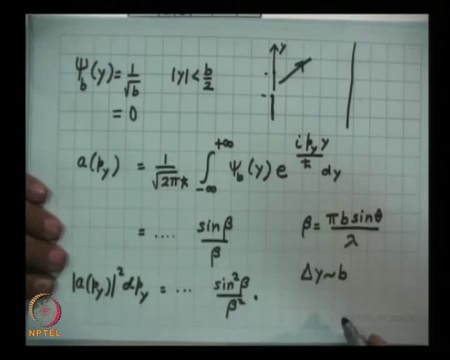 Ψ_b(y) = 1/√b |y| < b/2
= 0
y
a(p_y) = 1/√(2πħ) ∫_{-∞}^{+∞} Ψ_b(y) e^{i p_y y/ħ} dy
= .... sin β/β β = πb sinθ/λ
|a(p_y)|² dp_y = ... sin²β/β². Δy ~ b
NPTEL